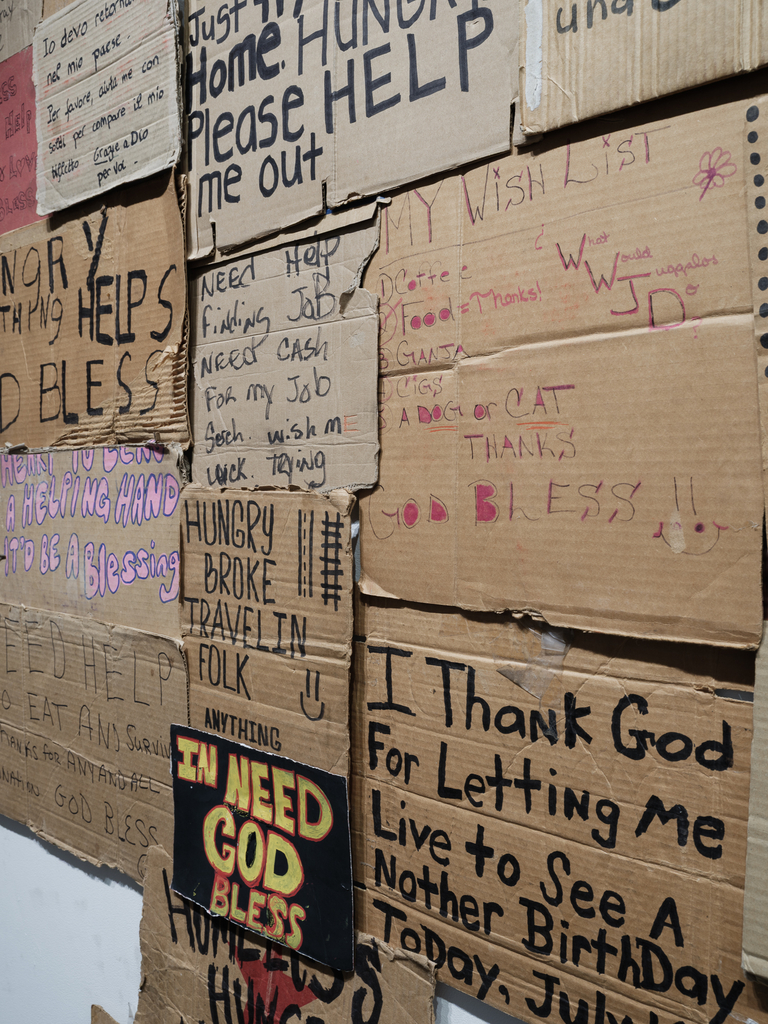 Io devo retornare
nel mio paese.
Per favore, aiuta me con
soldi per compare il mio
biglietto Grazie a Dio
per voi.
Just
Home. HUNGRY
Please HELP
me out
HELP
BLESS
NGRY
THING HELPS
D BLESS
NEED Help
finding JoB
NEED CASH
FOR my Job
Serch. wish mE
luck. TRYING
MY WISH LIST
What
Would
Juggalos
Do
?
1) Coffee
2) Food = Thanks!
3) GANJA
4) CIGS
5) A DOG or CAT
THANKS
GOD BLESS !!
A HELPING HAND
IT'D BE A Blessing
HUNGRY
BROKE
TRAVELIN
FOLK
ANYTHING
EED HELP
O EAT AND SURVIV
THANKS FOR ANY AND ALL
GOD BLESS
IN NEED
GOD
BLESS
HOMELESS
HUNG
I Thank God
For Letting Me
Live to See A
Nother BirthDay
ToDay, July